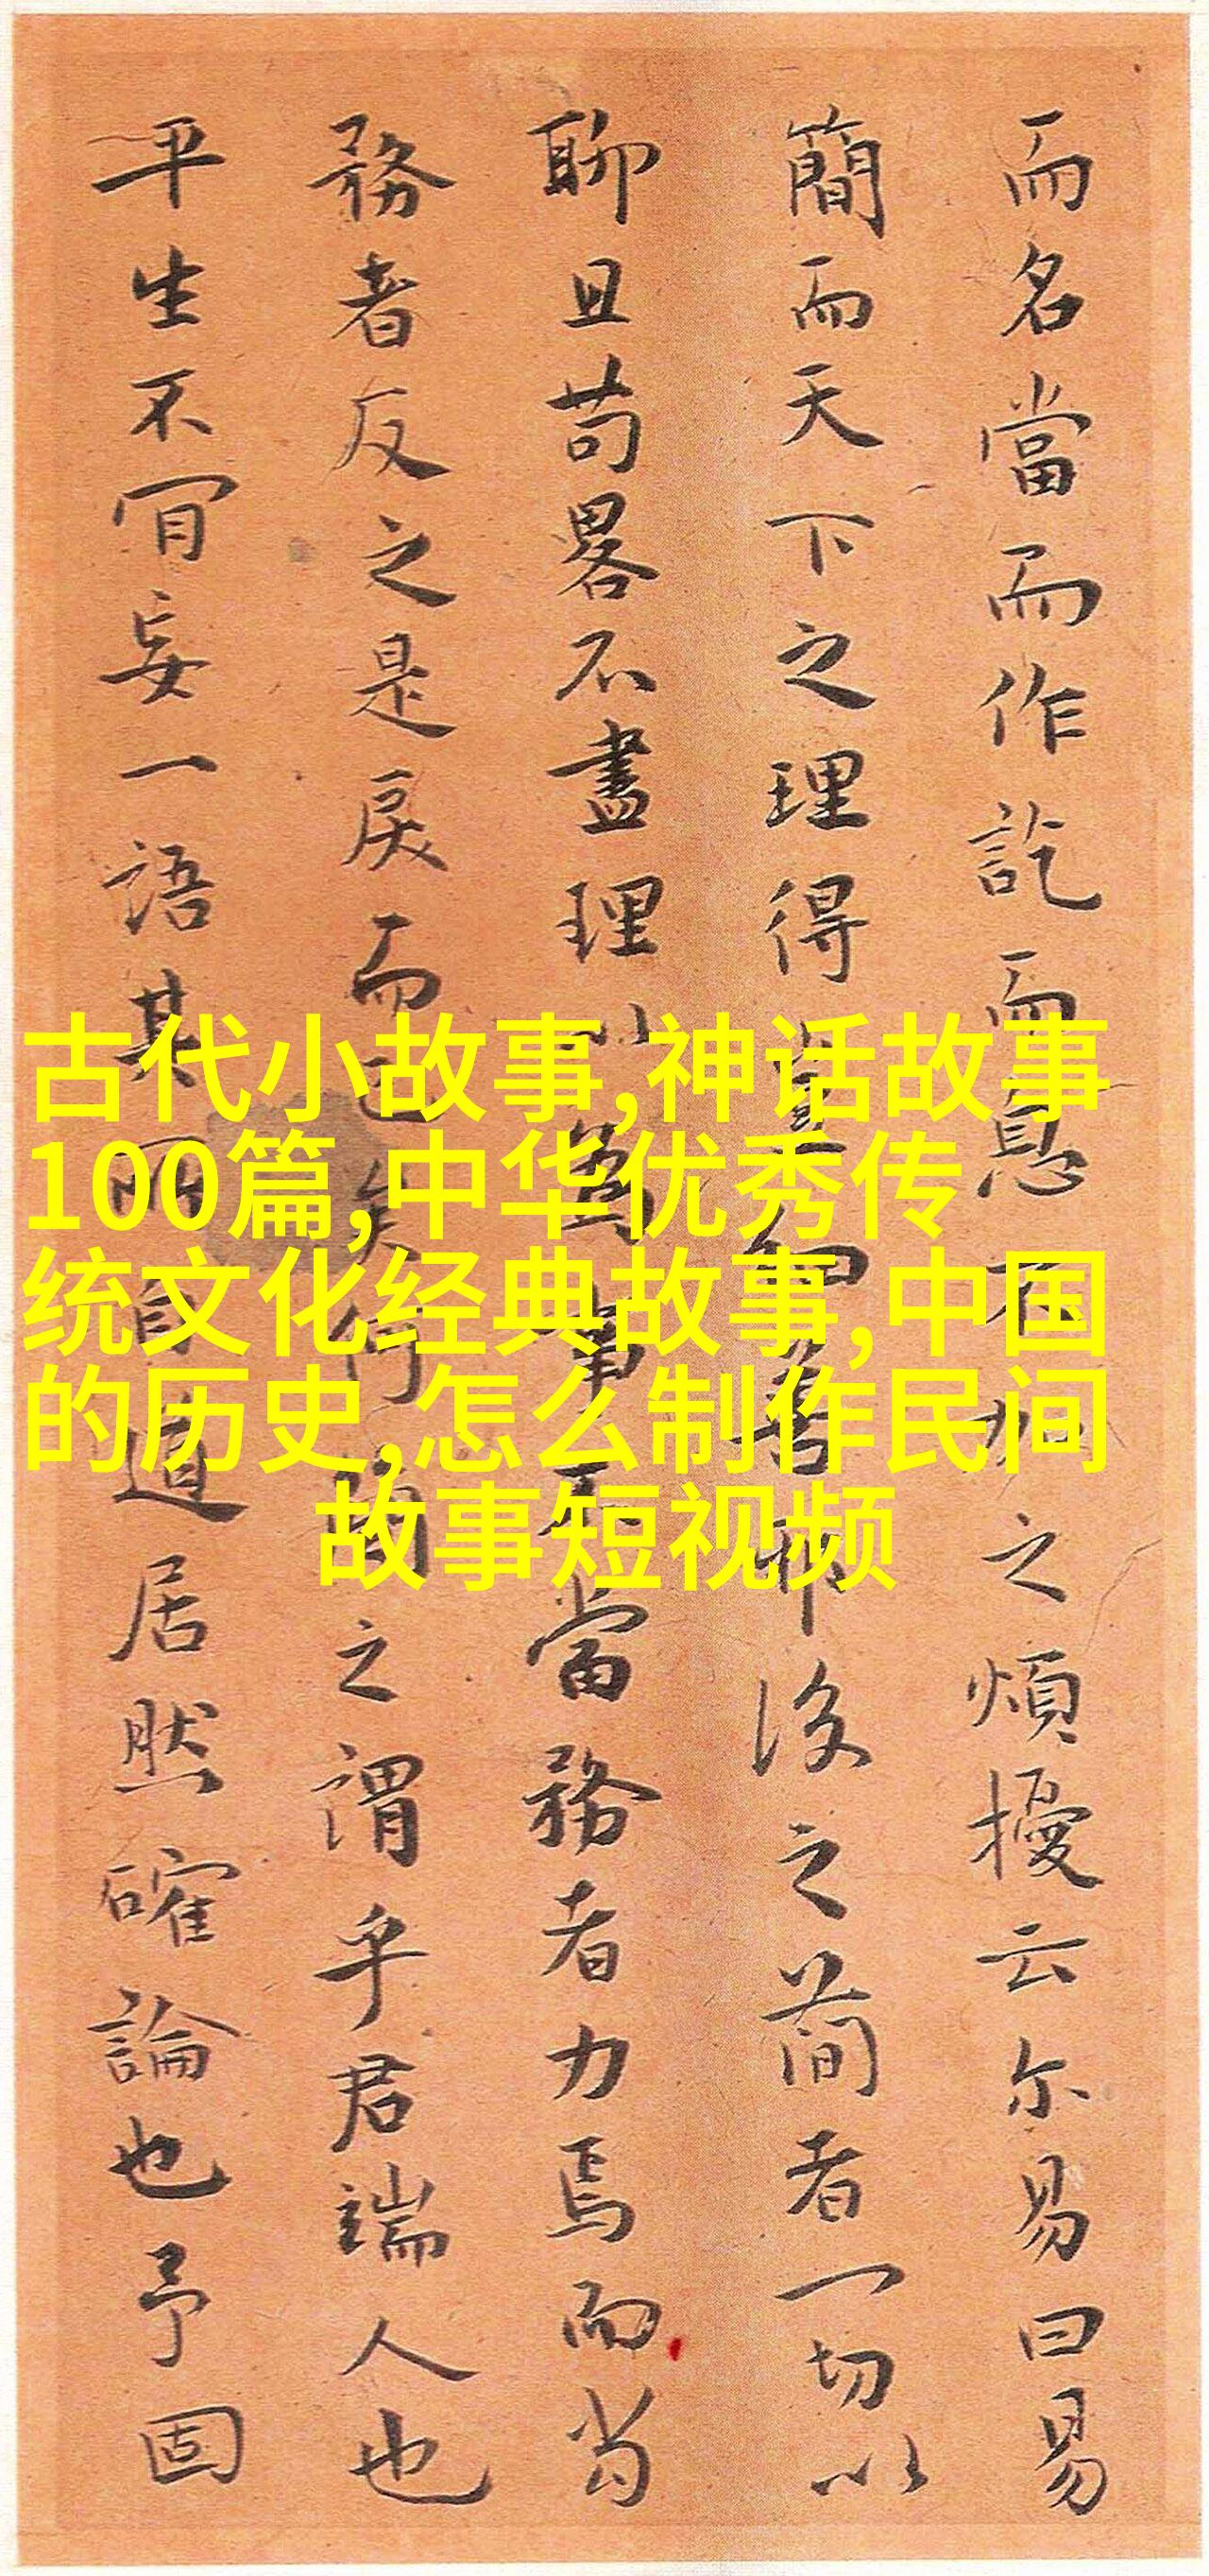 而名當而作訖而息不加之煩擾云尔易曰易
簡而天下之理得豈細善耶後之簡者一切以
聊且苟畧不盡理以為事不當務者力焉而當
務者反之是戾而已矣何簡之謂乎君端人也
平生不肎妄一語其所自道居然確論也予固
古代小故事,神话故事
100篇,中华优秀传
统文化经典故事,中国
的历史,怎么制作民间
故事短视频